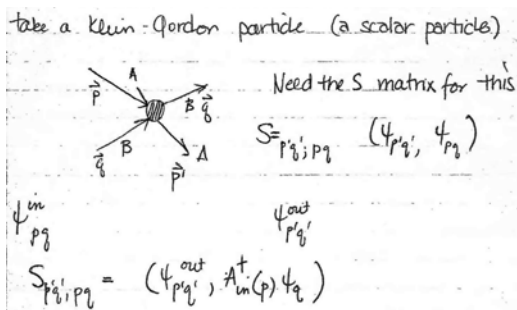 take a Klein-Gordon particle (a scalar particle)
Need the S matrix for this
p⃗ A B q⃗'
q⃗ B A p⃗'
S=p'q';pq (ψp'q', ψpq)
ψ^in_pq ψ^out_p'q'
S_p'q';pq = (ψ^out_p'q', A^†_in(p) ψ_q)